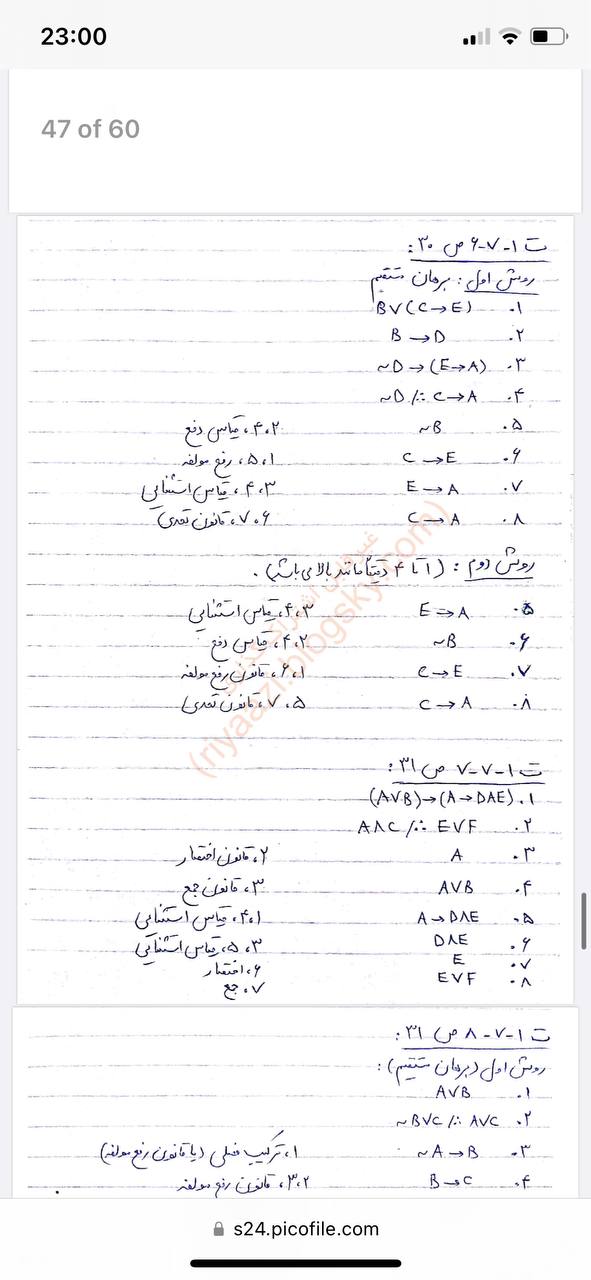 23:00
47 of 60
ت ۱-۷-۶ ص ۳۰:
روش اول: برهان مستقیم
۱. B∨(C→E)
۲. B→D
۳. ~D→(E→A)
۴. ~D /∴ C→A
۵. ~B ۴،۲، قیاس دفع
۶. C→E ۵،۱، رفع مولفه
۷. E→A ۴،۳، قیاس استثنایی
۸. C→A ۷،۶، قانون تعدی
روش دوم: (۱ تا ۴ دقیقاً مانند بالا می باشد).
۵. E→A ۴،۳، قیاس استثنایی
۶. ~B ۴،۲، قیاس دفع
۷. C→E ۶،۱، قانون رفع مولفه
۸. C→A ۷،۵، قانون تعدی
(riyaazi.blogsky.com)
ت ۱-۷-۷ ص ۳۱:
۱. (A∨B)→(A→D∧E)
۲. A∧C /∴ E∨F
۳. A ۲، قانون اختصار
۴. A∨B ۳، قانون جمع
۵. A→D∧E ۴،۱، قیاس استثنایی
۶. D∧E ۵،۳، قیاس استثنایی
۷. E ۶، اختصار
۸. E∨F ۷، جمع
ت ۱-۷-۸ ص ۳۱:
روش اول (برهان مستقیم):
۱. A∨B
۲. ~B∨C /∴ A∨C
۳. ~A→B ۱، ترکیب فصلی (یا قانون رفع مولفه)
۴. B→C ۳،۲، قانون رفع مولفه
s24.picofile.com